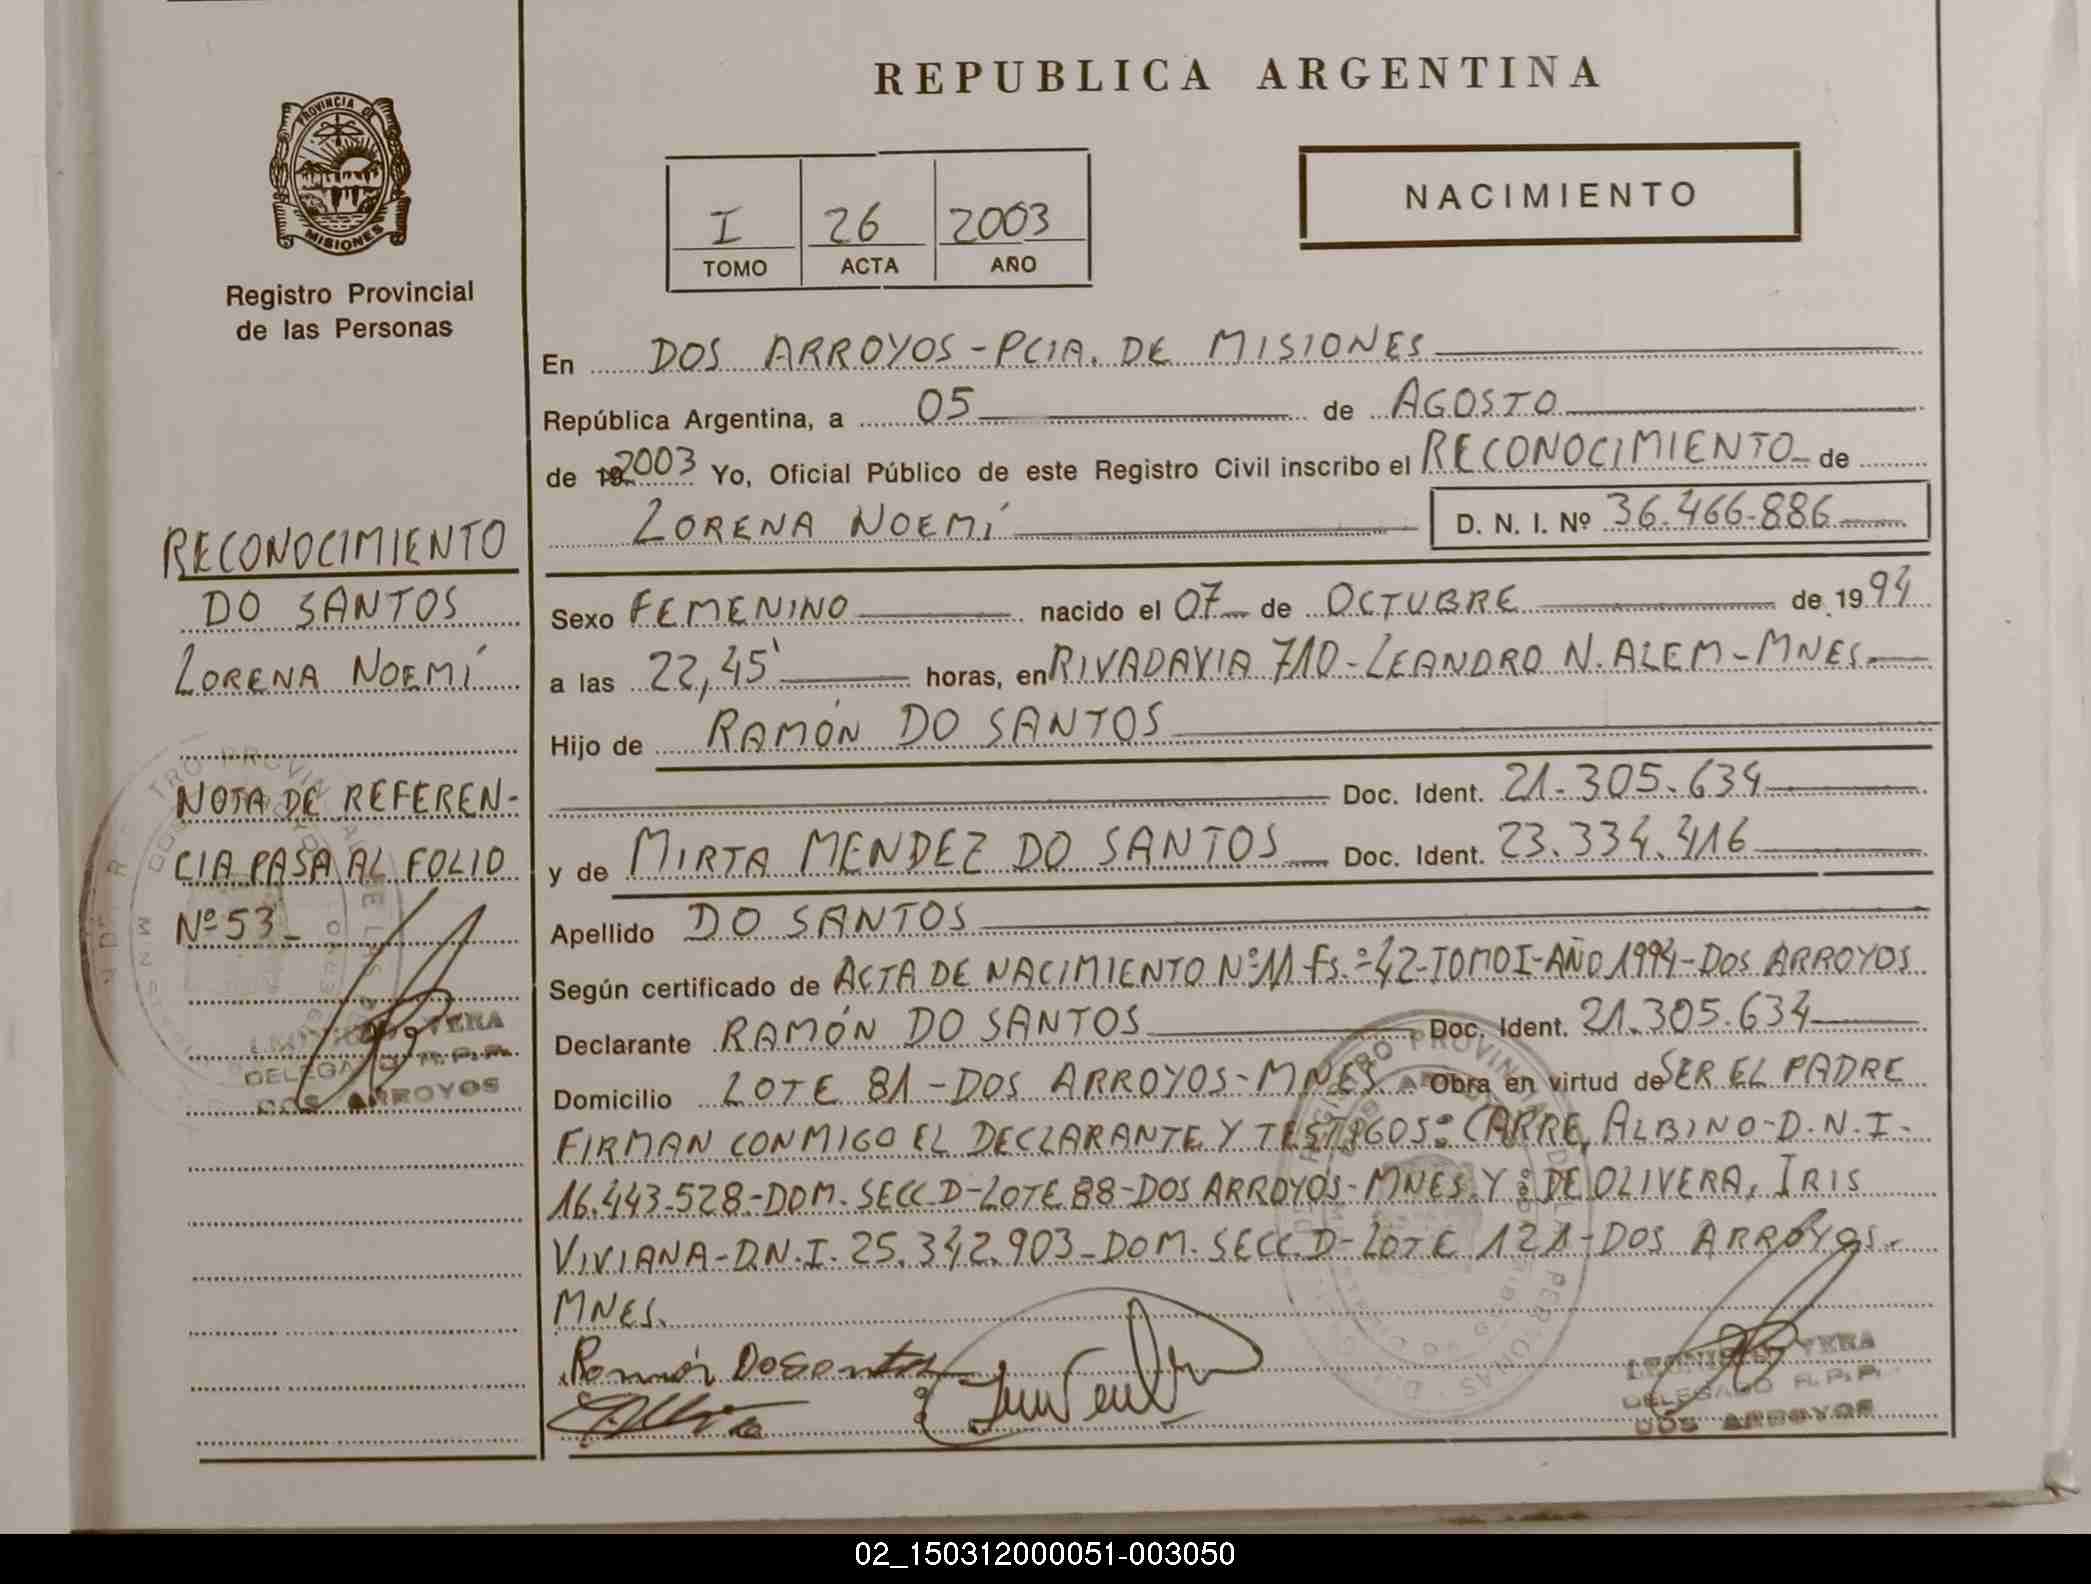 REPUBLICA ARGENTINA
PROVINCIA DE
MISIONES
Registro Provincial
de las Personas
I 26 2003
TOMO ACTA AÑO
NACIMIENTO
En DOS ARROYOS - PCIA. DE MISIONES
República Argentina, a 05 de AGOSTO
de 19 2003 Yo, Oficial Público de este Registro Civil inscribo el RECONOCIMIENTO de
LORENA NOEMÍ D. N. I. Nº 36.466.886
Sexo FEMENINO nacido el 07 de OCTUBRE de 1994
a las 22,45' horas, en RIVADAVIA 710 - LEANDRO N. ALEM - MNES.
Hijo de RAMÓN DO SANTOS
Doc. Ident. 21.305.634
y de MIRTA MENDEZ DO SANTOS Doc. Ident. 23.334.416
Apellido DO SANTOS
Según certificado de ACTA DE NACIMIENTO Nº 11 Fs.º 42 - TOMO I - AÑO 1994 - DOS ARROYOS
Declarante RAMÓN DO SANTOS Doc. Ident. 21.305.634
Domicilio LOTE 81 - DOS ARROYOS - MNES Obra en virtud de SER EL PADRE
FIRMAN CONMIGO EL DECLARANTE Y TESTIGOS: CARRE, ALBINO - D.N.I.
16.443.528 - DOM. SECC. D - LOTE 88 - DOS ARROYOS - MNES. Y: DE OLIVERA, IRIS
VIVIANA - D.N.I. 25.342.903 - DOM. SECC. D - LOTE 121 - DOS ARROYOS.
MNES.
Ramón Dosantos
VERA
DELEGADO R.P.P.
DOS ARROYOS
RECONOCIMIENTO
DO SANTOS
LORENA NOEMÍ
NOTA DE REFEREN-
CIA PASA AL FOLIO
Nº 53
VERA
DELEGADO R.P.P.
DOS ARROYOS
02_150312000051-003050